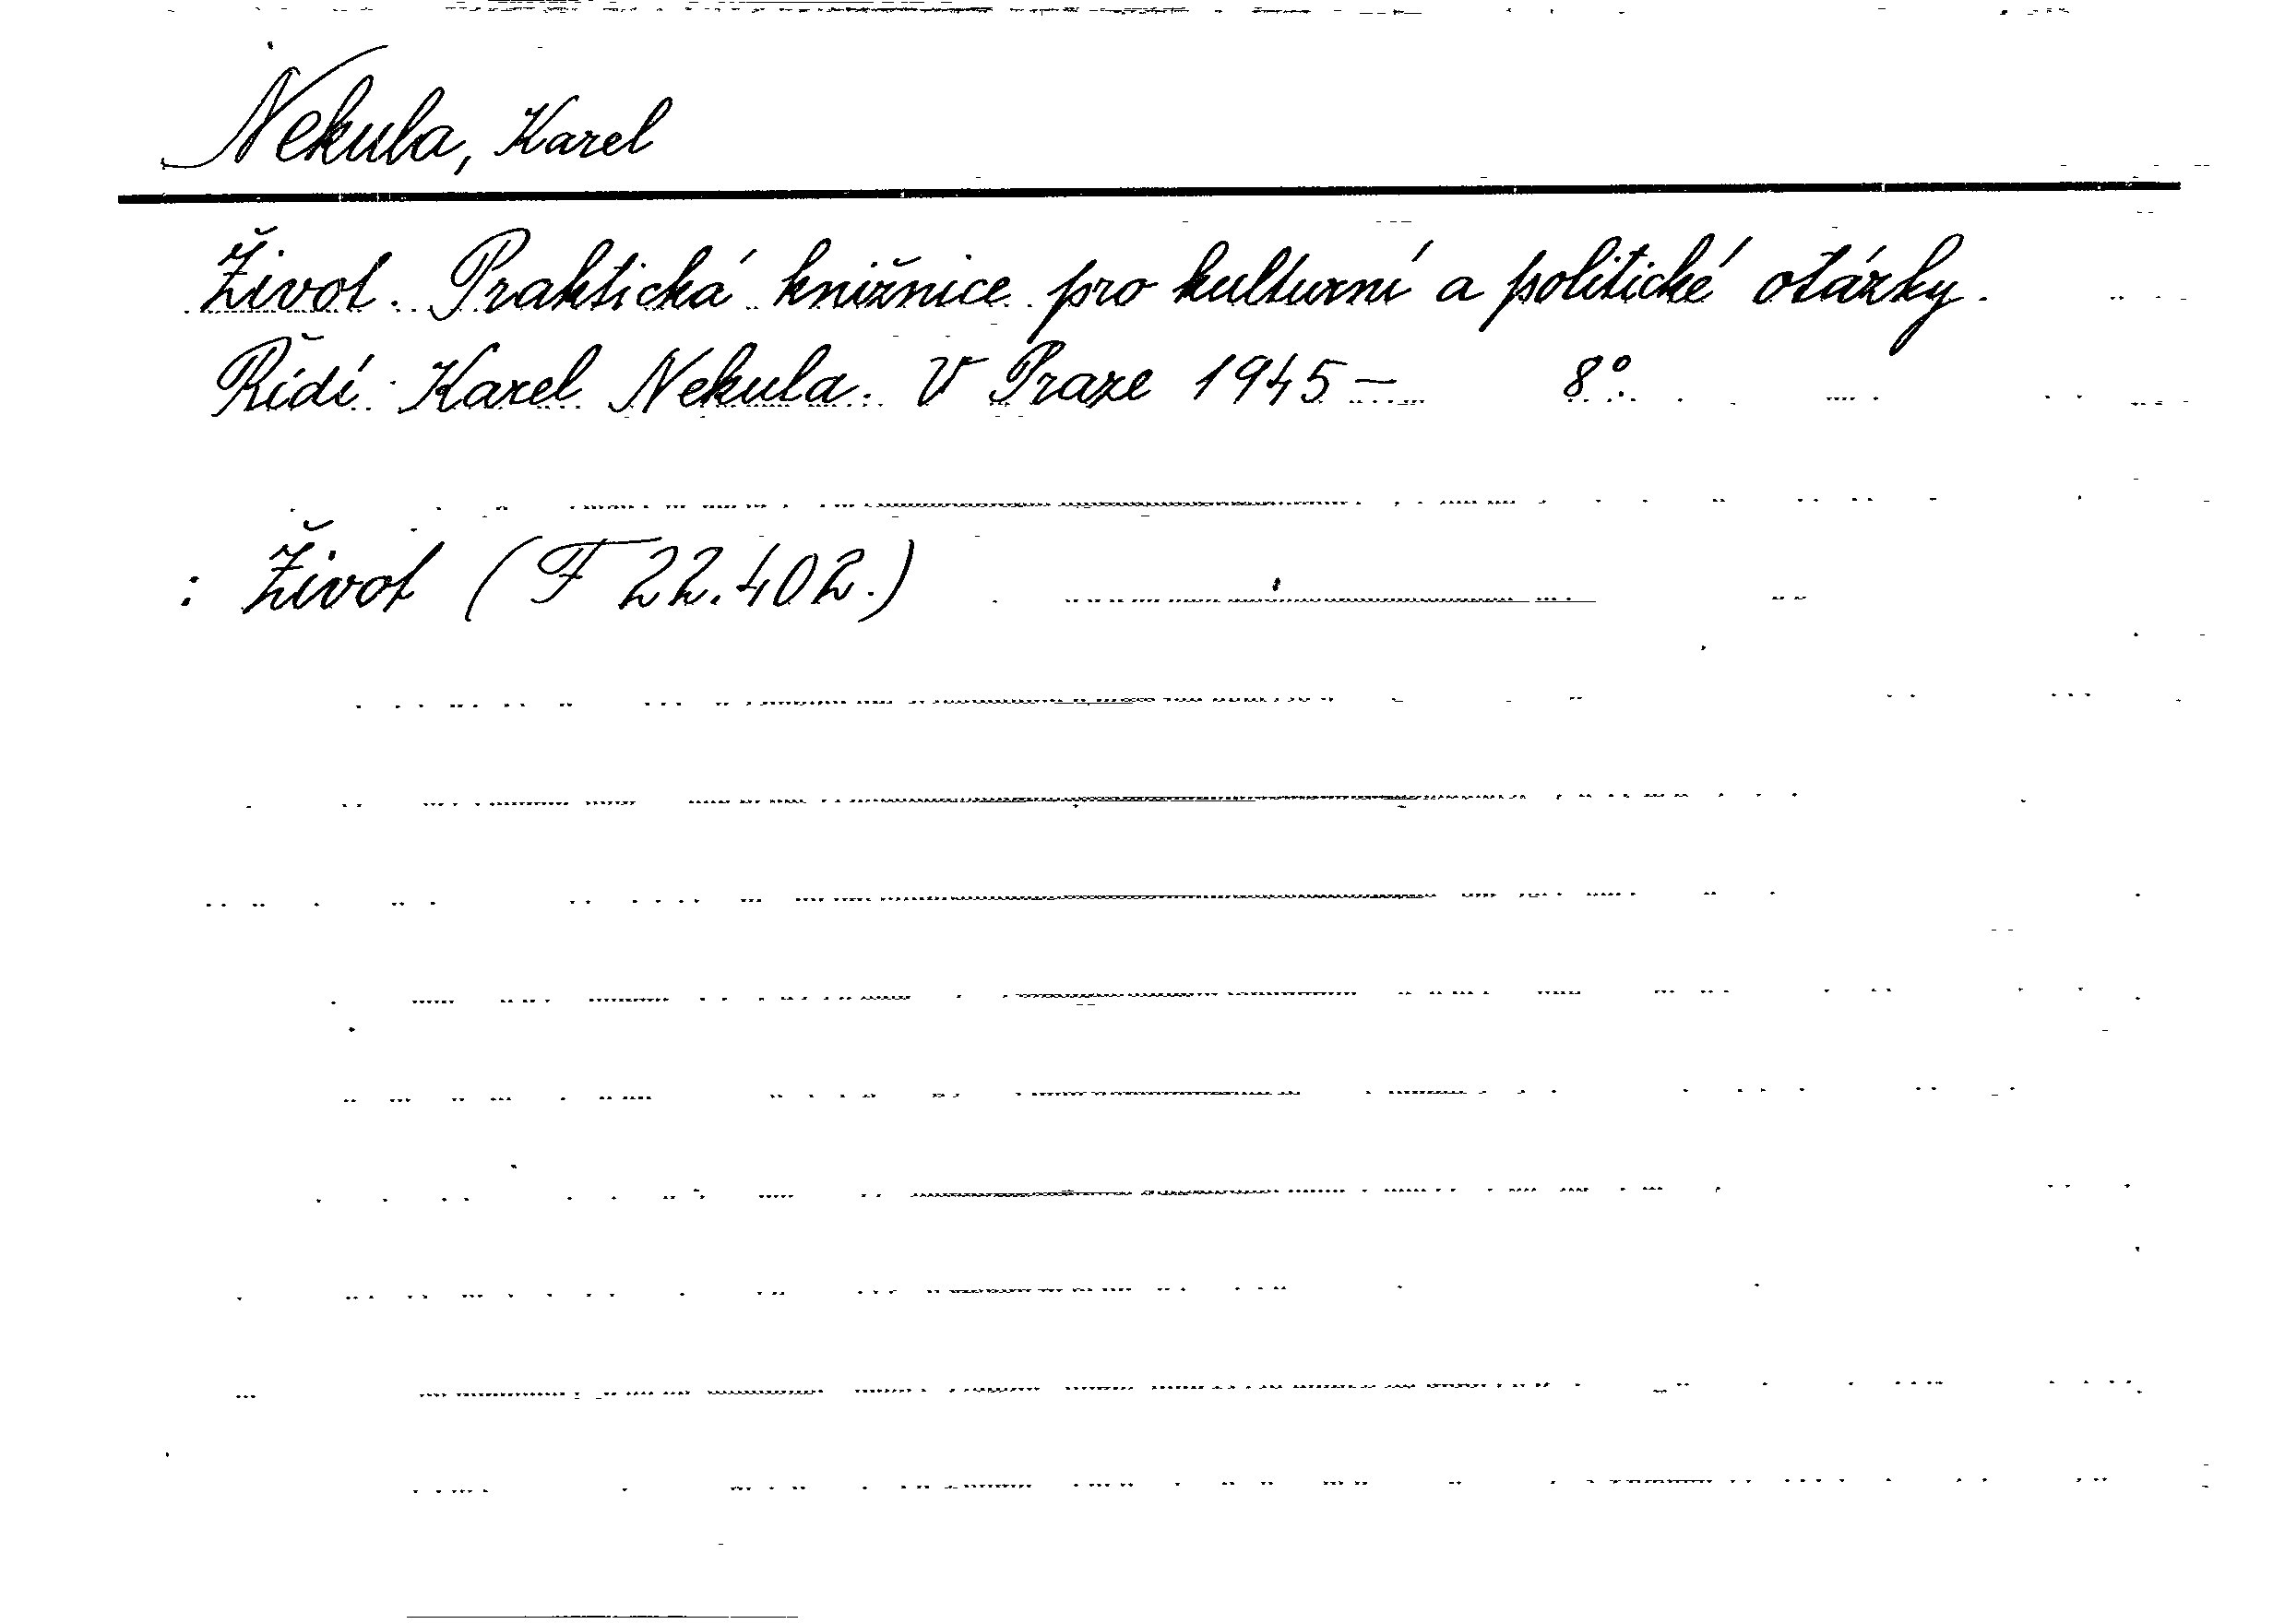 Nekula, Karel
Život. Praktická knižnice pro kulturní a politické otázky.
Řídí: Karel Nekula. V Praze 1945— 8°.
: Život (F 22.402.)